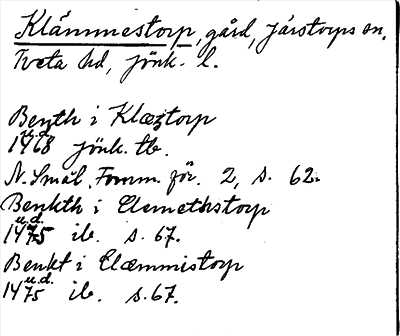 Klämmestorp, gård, Järstorps sn,
Tveta hd, Jönk. l.
Benth i Klæztorp
u.d.
1468 Jönk. tb.
N. Smål. Fornm. för. 2, s. 62.
Benkth i Clemethstorp
u.d.
1475 ib. s. 67.
Benkt i Clæmmistorp
u.d.
1475 ib. s. 67.